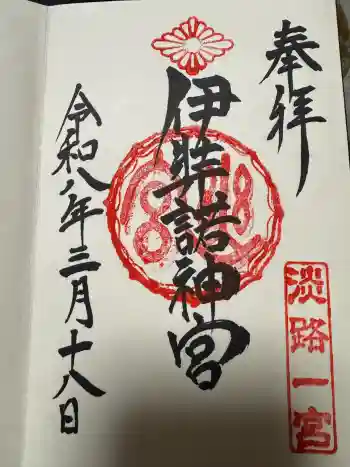 奉拝
伊弉諾神宮
淡路一宮
令和八年三月十八日